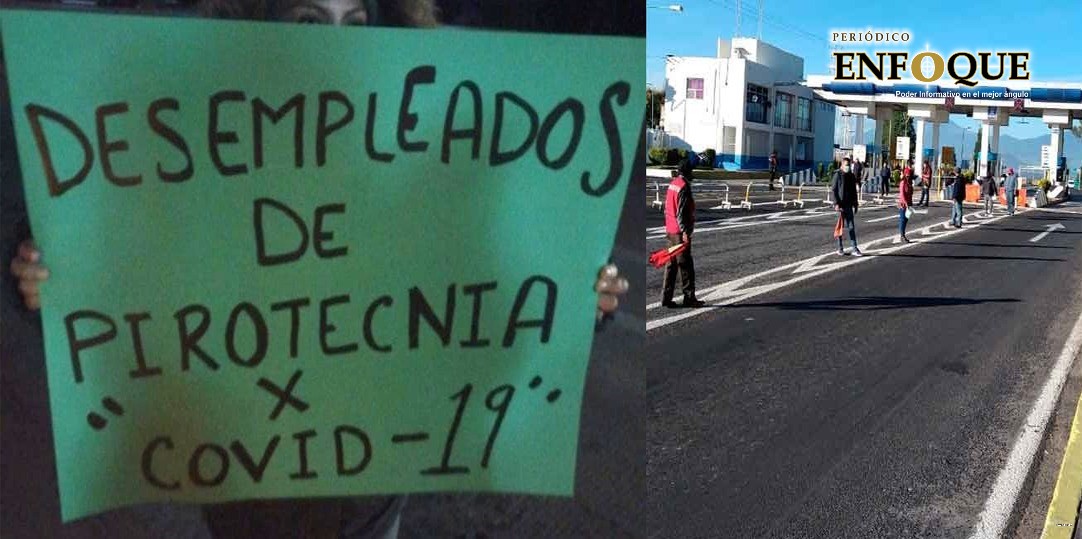 DESEMPLEADOS
DE
PIROTECNIA
X
"COVID-19"
PERIÓDICO
ENFOQUE
Poder Informativo en el mejor ángulo